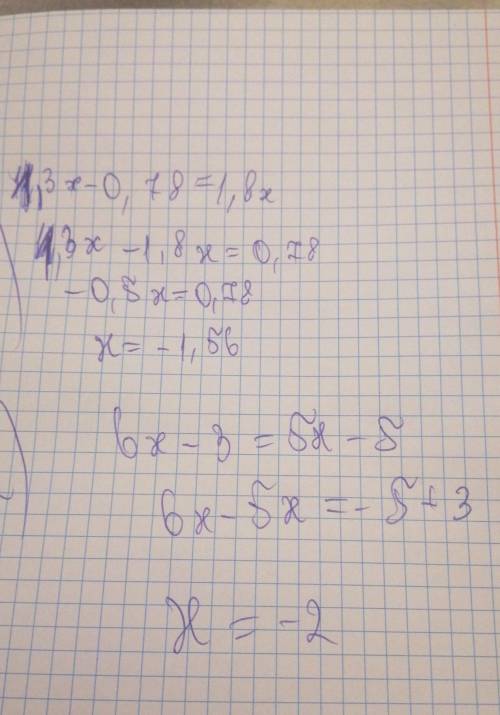 1,3x-0,78=1,8x
1,3x-1,8x=0,78
-0,5x=0,78
x=-1,56
6x-3=5x-5
6x-5x=-5+3
x=-2